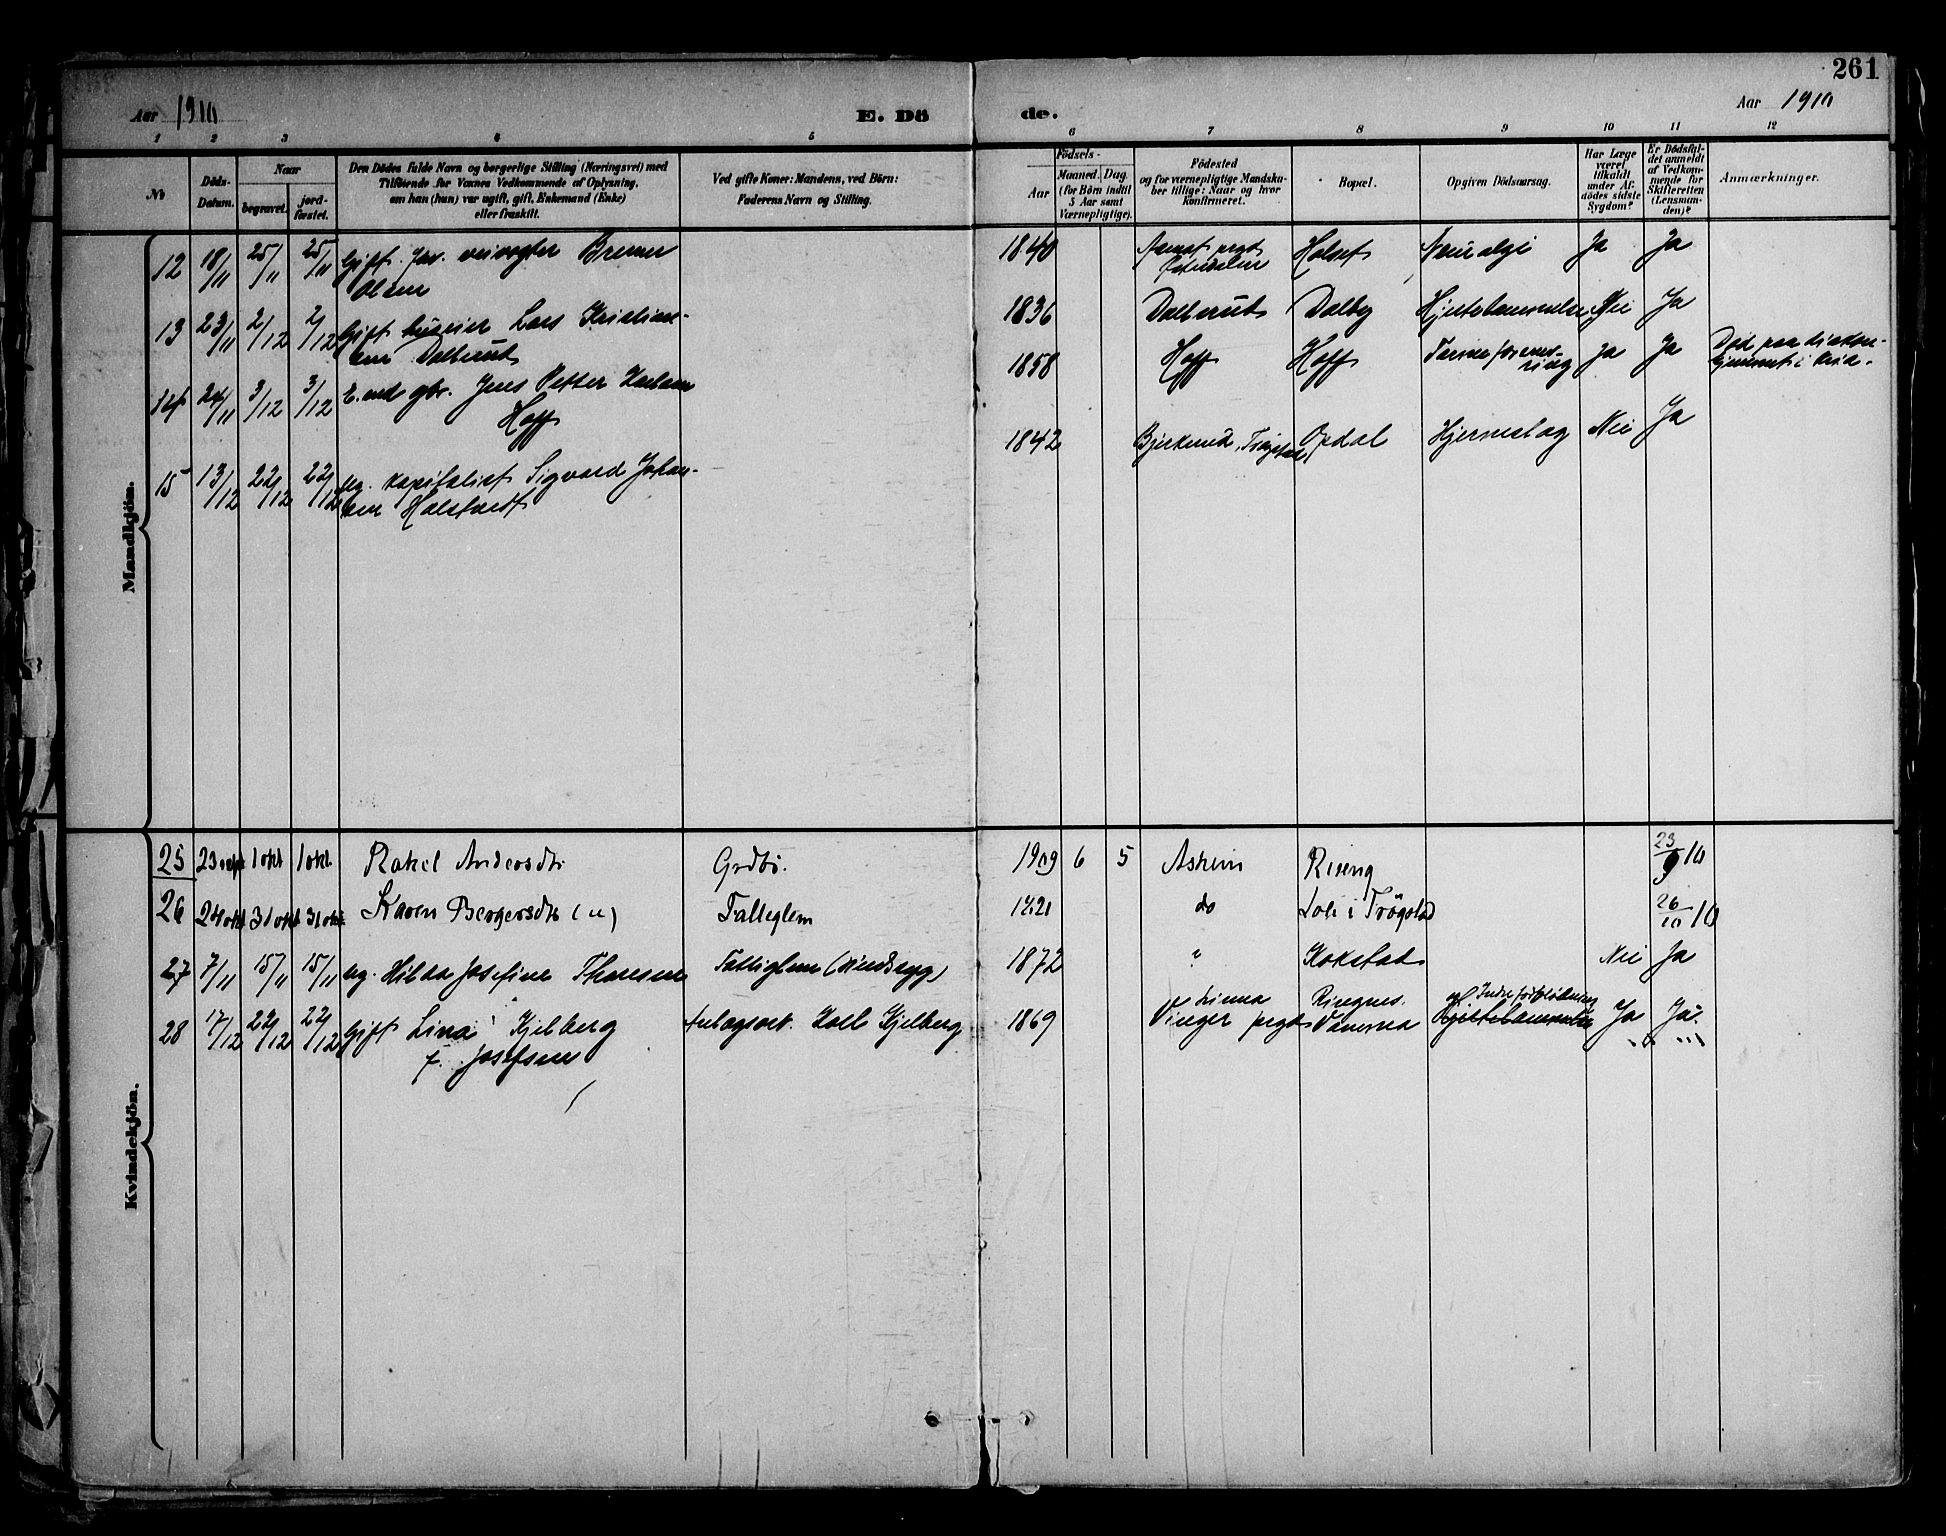 261
Aar 1910
E. Dö
de.
Aar 1910
1 2 3 4 5 6 7 8 9 10 11 12
No
Döds-Datum.
Naar
begravet.
jord-fæstet.
Den Dödes fulde Navn og borgerlige Stilling (Næringsvei) med
Tilföiende for Voxnes Vedkommende af Oplysning,
om han (hun) var ugift, gift, Enkemand (Enke)
eller fraskilt.
Ved gifte Koner: Mandens, ved Börn:
Faderens Navn og Stilling.
Födsels-
Aar
Maaned.
Dag.
(for Börn indtil
5 Aar samt
Værnepligtige).
Födested
og for værnepligtige Mandska-
ber tillige: Naar og hvor
konfirmeret.
Bopæl.
Opgiven Dödsaarsag.
Har Læge
været
tilkaldt
under Af-
dödes sidste
Sygdom?
Er Dödsfal-
det anmeldt
af Vedkom-
mende for
Skifteretten
(Lensman-
den)?
Anmærkninger.
Mandkjön.
12 18/11 25/11 25/11 Gift veivogter Bremer 1840 Holset Ja Ja
Olsen
13 23/11 2/12 2/12 Gift Lars Kristian- 1836 Dalbrud Dalby Nei Ja
sen Dalbrud
14 24/11 3/12 3/12 E.md gbr. Jens Petter Karlsen 1858 Hoff Hoff Ja Ja Död paa
Hoff
15 13/12 22/12 22/12 ug. kapitalist Sigvard Johan- 1842 Opdal Hjerneslag Nei Ja
sen Halstvedt
Kvindekjön.
25 23 sept 1 okt 1 okt. Rakel Andersdtr Grdbr. 1909 6 5 Askim Riseng 23/9 10
26 24 okt 31 okt 31 okt Karen Bergersdtr (u) Fattiglem do i Trögstad 26/10 10
27 7/11 15/11 15/11 ug. Hilda Josefine Thoresen Fattiglem (sindssyg) 1872 " Kokstad Nei Ja
28 17/12 22/12 22/12 Gift Lina Kjelberg anlægsarb. Karl Kjelberg 1869 Vinger prgd Ringnes. Vamma Indre forblödning Ja Ja.
f. Josefsen